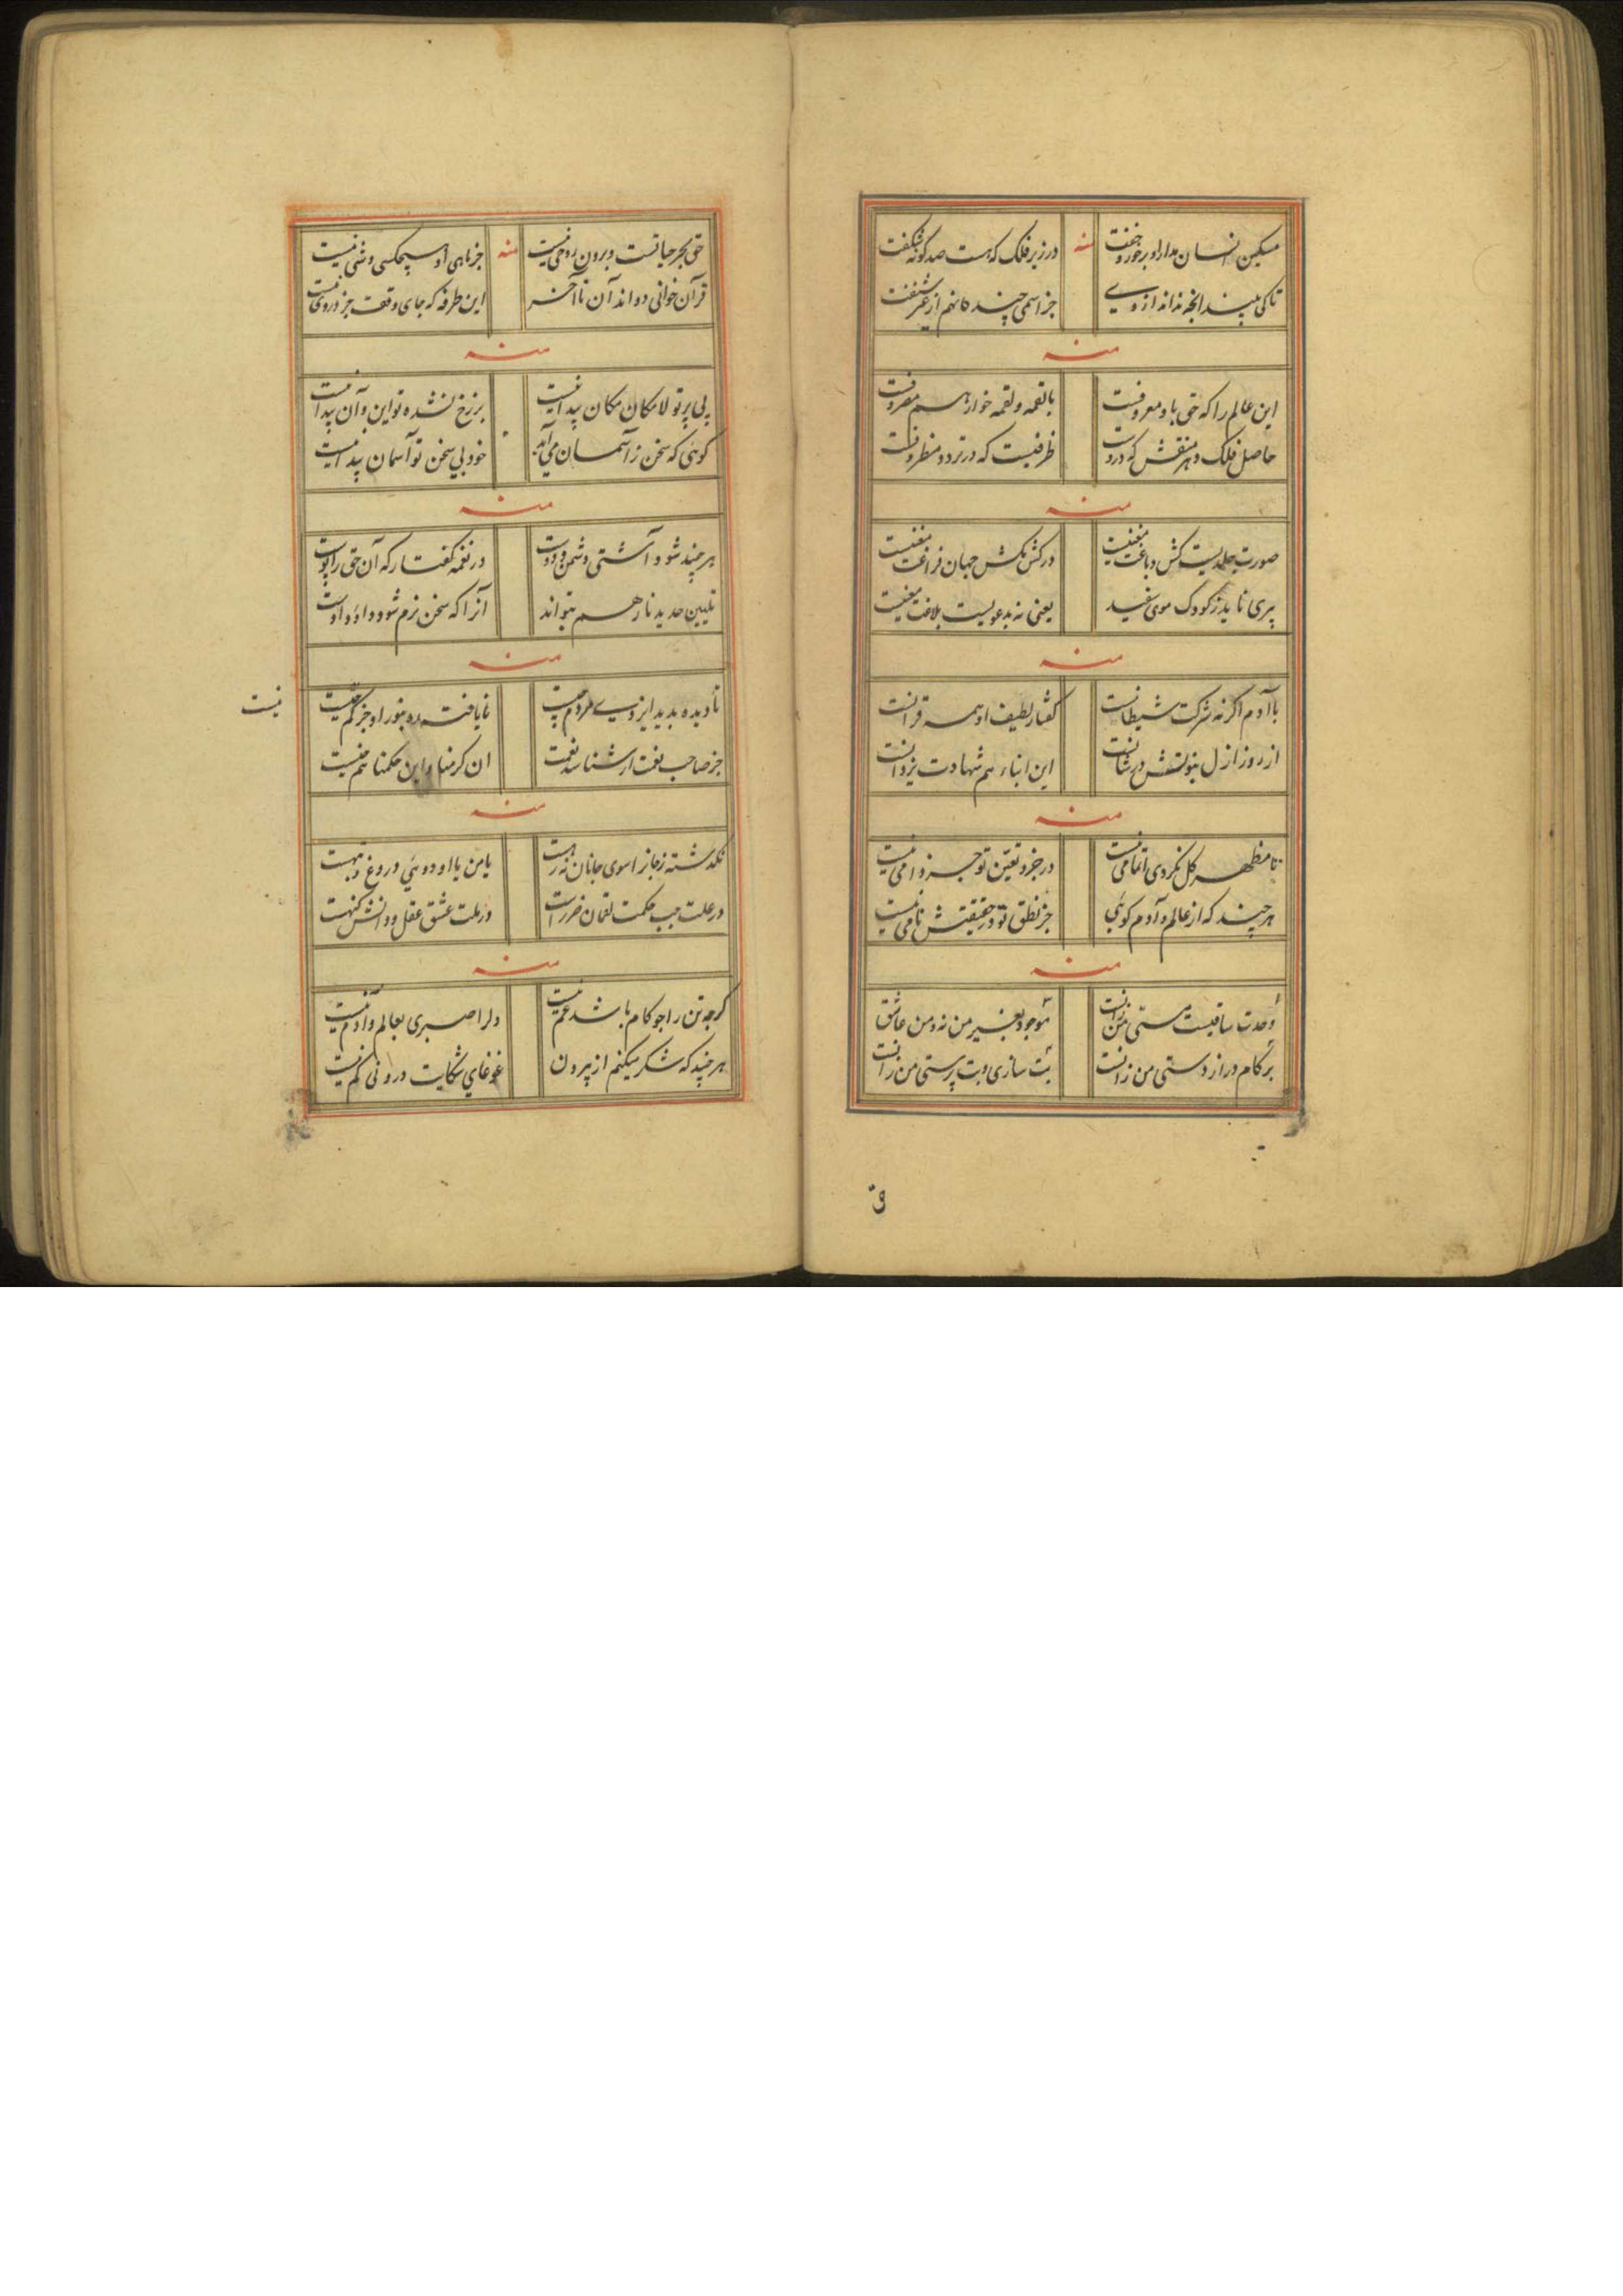 مسکین انسان مدار او بر خور و خفت منه در زیر فلک که هست صد گونه شکفت
تا کی بیند آنچه نداند از وی جز اسمی چند کانهم از غیر شنفت
منه
این عالم را که حق باو معروفست با لقمه و لقمه خوار هم معروفست
حاصل فلک و هر منقش که دروست ظرفیست که در تردد مظروفست
منه
صورت جلدیست کش دباغت معنیست در کش مکش جهان فراغت معنیست
پیری ناید ز کودک موی سفید یعنی نه بدعویست بلاغت معنیست
منه
با آدم اگر نه شرکت شیطانست گفتار لطیف او همه قرآنست
از روز ازل بنوتش در شانست این ابناء هم شهادت یزدانست
منه
تا مظهر کل نکردی اتمامی نیست در جزو تعین تو جز وامی نیست
هر چند که از عالم و آدم گوئی جز نطق تو در حقیقتش نامی نیست
منه
وحدت ساقیست مستی من زانست موجود بغیر من نه و من عاشق
بر کام دراز دستی من زانست بت سازی و بت پرستی من زانست
ق
حق بحر حیاتست و برون روحی نیست منه جز ماهی او هیچکسی و شی نیست
قرآن خوانی دواند آن تا آخر این طرفه که جای وقعت جز در وی نیست
منه
بی پرتو لامکان مکان پیدا نیست برزخ نشده تو این و آن پیدا نیست
گوئی که سخن ز آسمان می آید خود بی سخن تو آسمان پیدا نیست
منه
هر چند شود آشتی دشمن و دوست در نغمه گفتار که آن حق را بوست
تلیین حدید نار هم بتواند آنرا که سخن نرم شود داؤد اوست
منه
تا دیده بدید ایزدی مردم چیست نا یافته ره بنور او جز گم نیست
جز صاحب نعمت ار شناسد نعمت ان کرمنا و این حکمنا هم نیست
نیست
منه
نکذشته ز جان را سوی جانان نه رهست یا من یا او دوئی دروغ و تبهست
در علت حب حکمت لقمان ضررست در ملت عشق عقل و دانش کنهست
منه
کرچه تن را جو کام باشد غم نیست دلرا صبری بعالم و آدم نیست
هر چند که شکر میکنم از بیرون غوغای شکایت درونی کم نیست